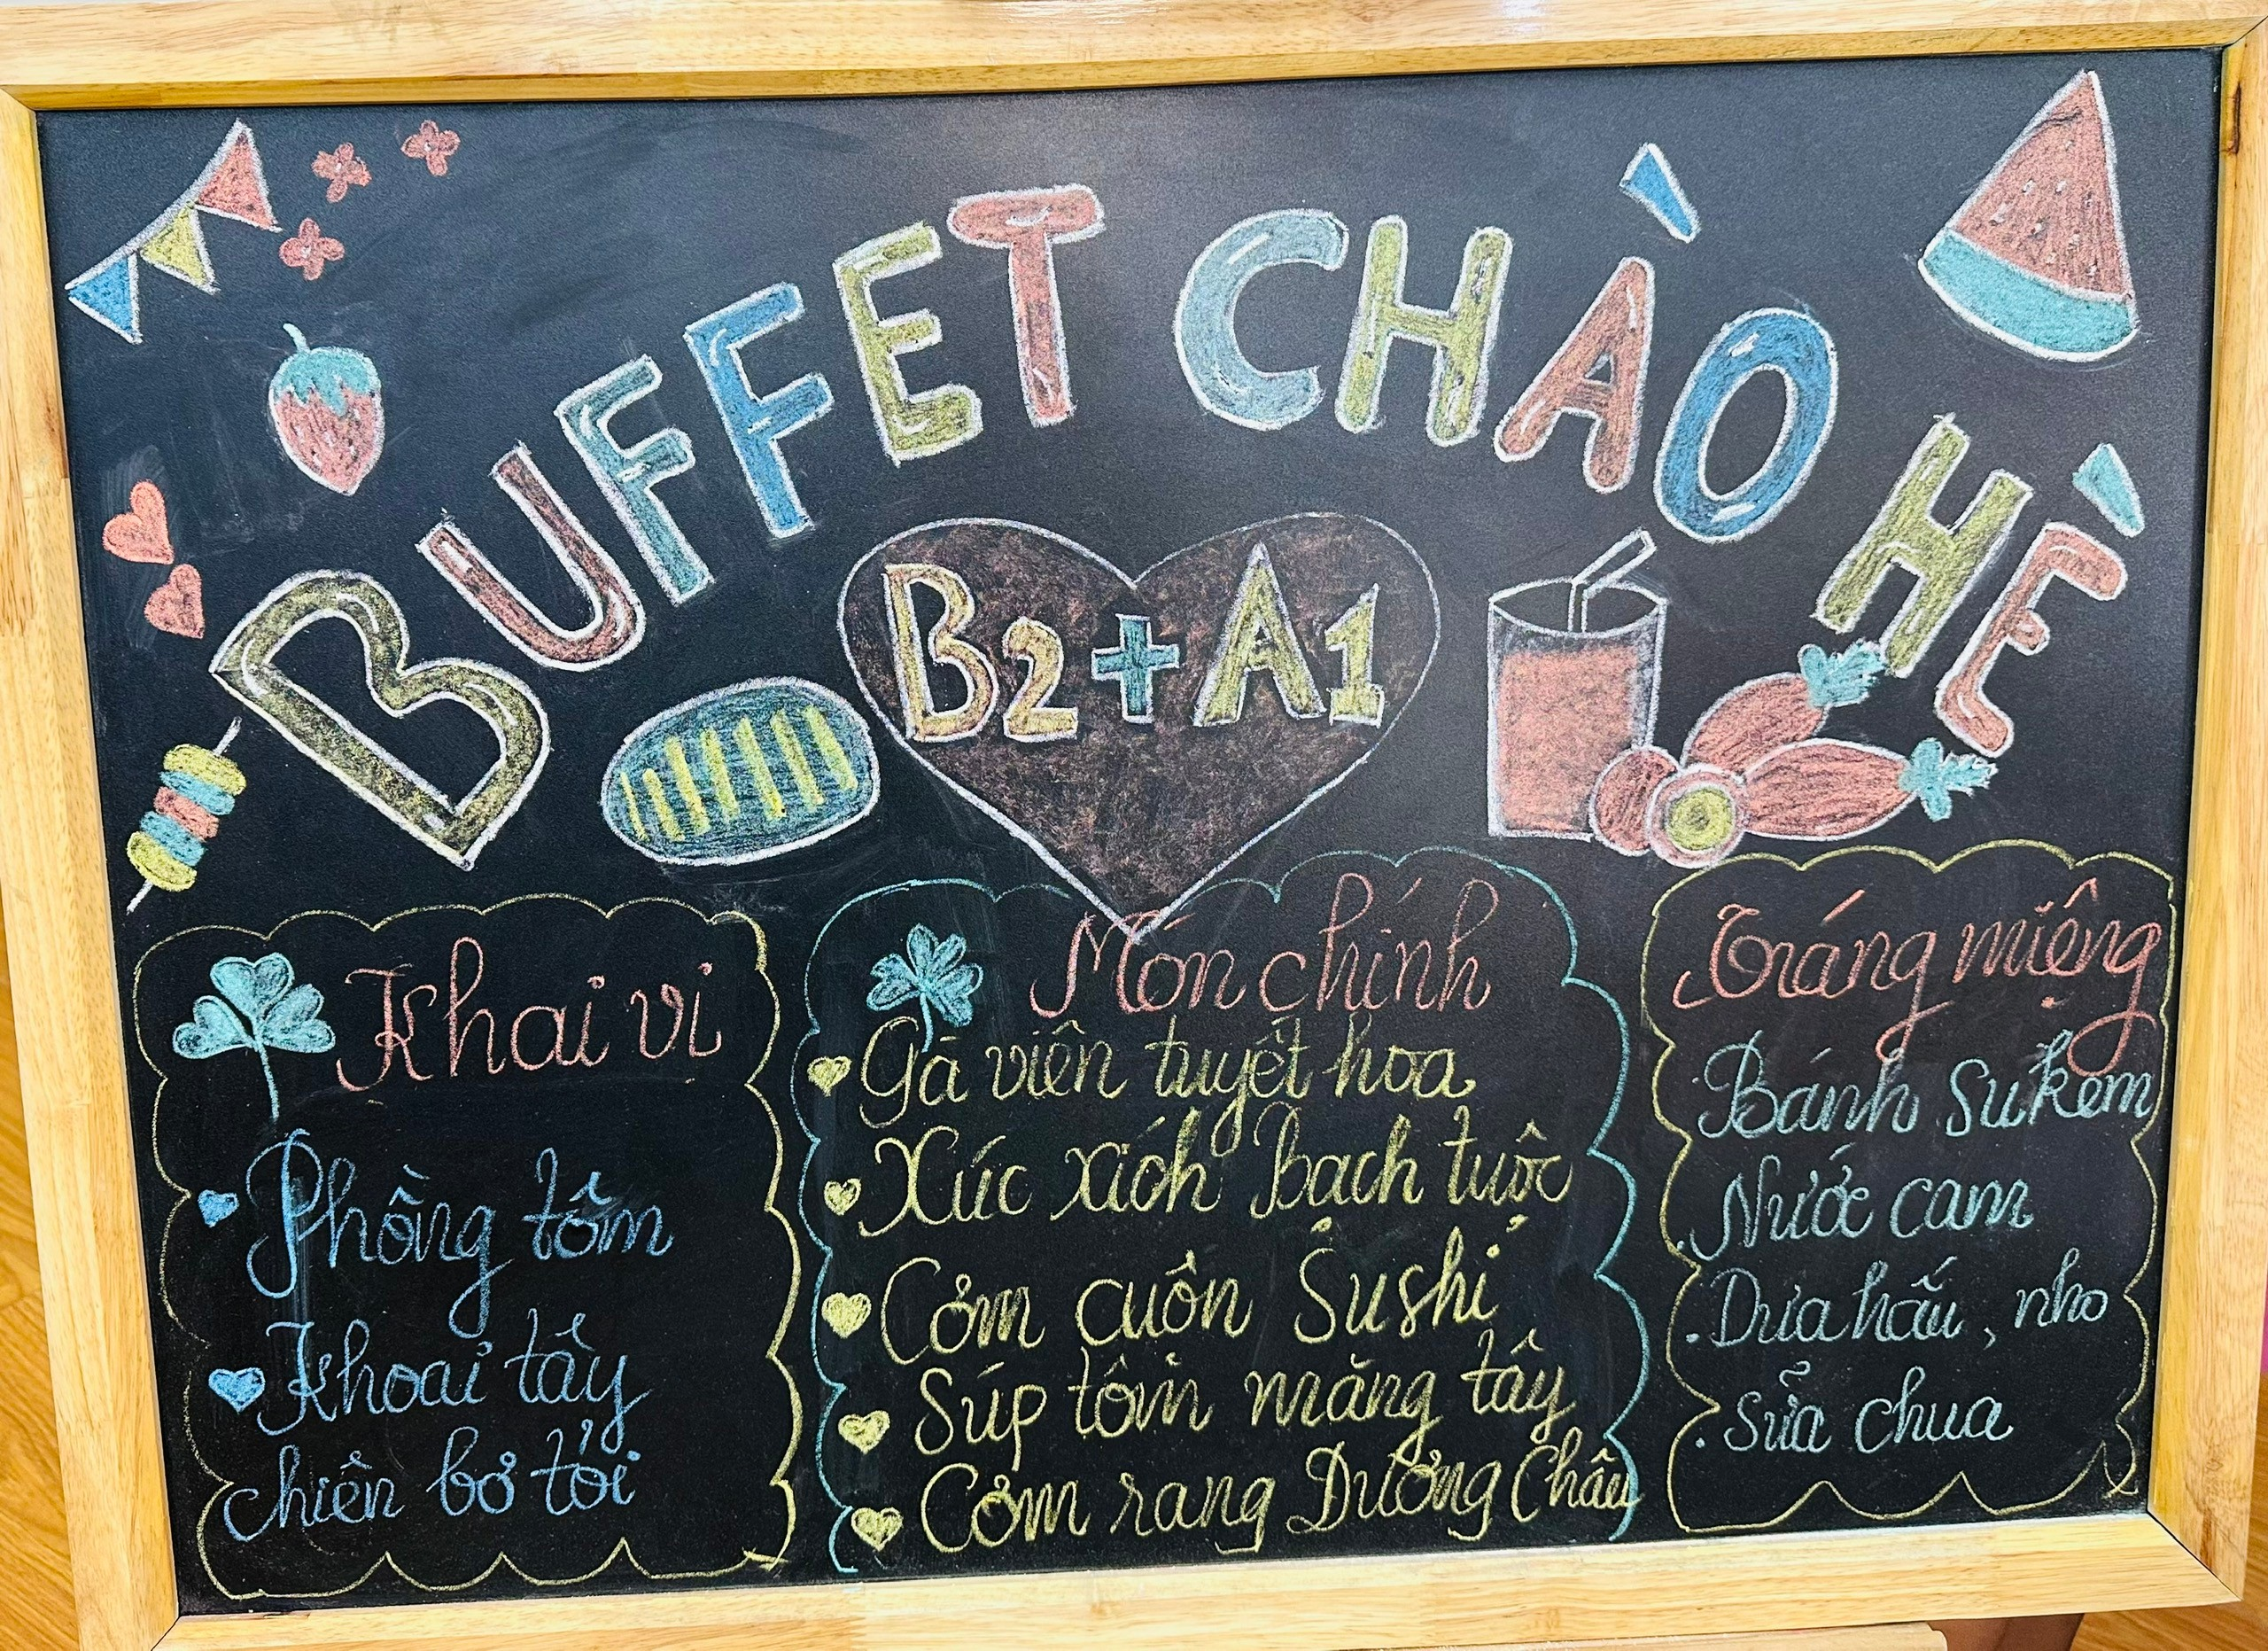 BUFFET CHÀO HÈ
B2+A1
Khai vị
Phồng tôm
Khoai tây
chiên bơ tỏi
Món chính
Gà viên tuyết hoa
Xúc xích bạch tuộc
Cơm cuộn Sushi
Súp tôm măng tây
Cơm rang Dương Châu
Tráng miệng
Bánh Su kem
Nước cam
Dưa hấu, nho
Sữa chua